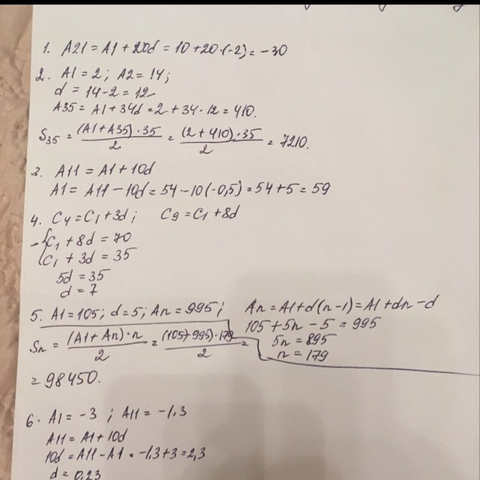 1. A21 = A1 + 20d = 10 + 20·(-2) = -30
2. A1 = 2; A2 = 14;
d = 14 - 2 = 12
A35 = A1 + 34d = 2 + 34·12 = 410.
S35 = (A1 + A35)·35 / 2 = (2 + 410)·35 / 2 = 7210.
3. A11 = A1 + 10d
A1 = A11 - 10d = 54 - 10(-0,5) = 54 + 5 = 59
4. C4 = C1 + 3d; C9 = C1 + 8d
- { C1 + 8d = 70
C1 + 3d = 35
5d = 35
d = 7
5. A1 = 105; d = 5; An = 995; An = A1 + d(n-1) = A1 + dn - d
105 + 5n - 5 = 995
5n = 895
n = 179
Sn = (A1 + An)·n / 2 = (105 + 995)·179 / 2 =
= 98450.
6. A1 = -3; A11 = -1,3
A11 = A1 + 10d
10d = A11 - A1 = -1,3 + 3 = 2,3
d = 0,23